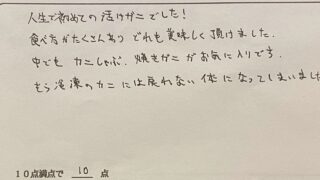 人生で初めての活けガニでした!
食べ方がたくさんあり どれも美味しく頂けました.
中でも カニしゃぶ. 焼きガニ がお気に入りです.
もう冷凍のカニには戻れない体になってしまいました
10点満点で 10 点